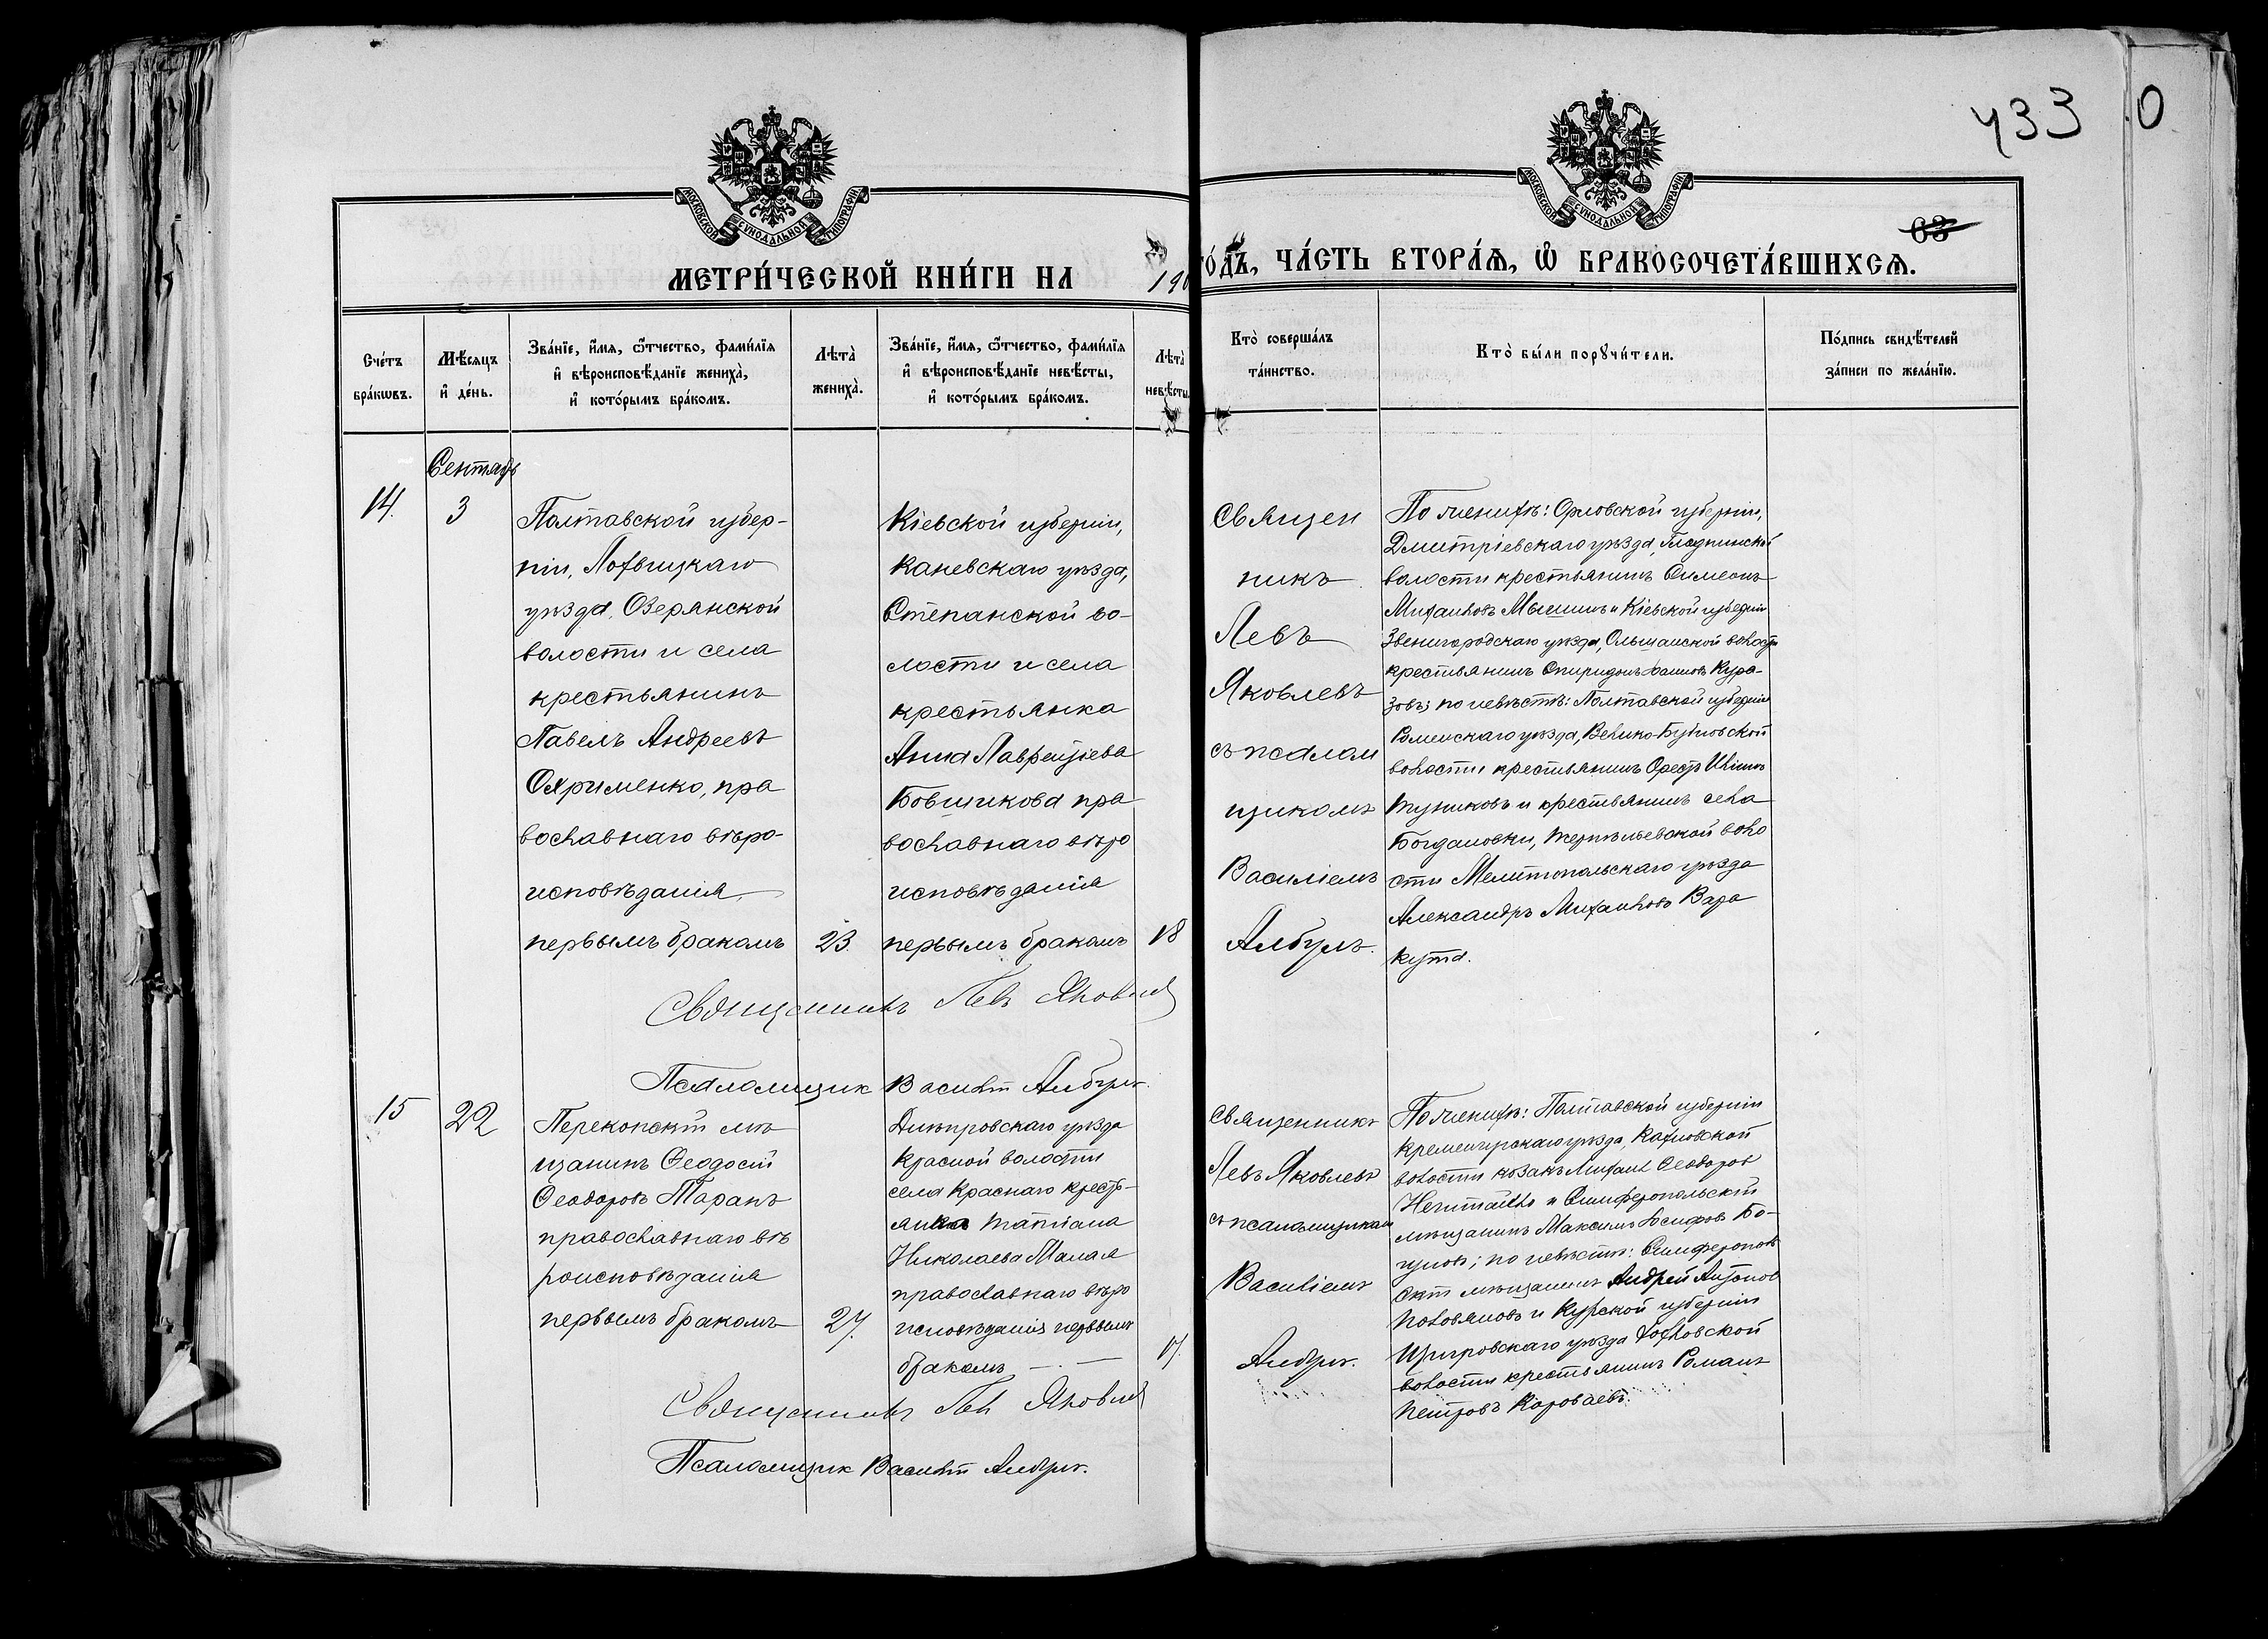 433
0
МОСКОВСКОЙ СУНОДАЛЬНОЙ ТИПОГРАФІИ
МОСКОВСКОЙ СУНОДАЛЬНОЙ ТИПОГРАФІИ
63
МЕТРИ́ЧЕСКОЙ КНИ́ГИ НА 190
ГО́ДЪ, ЧА́СТЬ ВТОРА́Ѧ, Ѡ҆ БРАКОСОЧЕТА́ВШИХСѦ.
Сче́тъ бра́кѡвъ.
Мѣ́сяцъ и҆ де́нь.
Зва́нїе, и҆́мѧ, ѻ҆́тчество, фами́лїѧ
и҆ вѣроисповѣ́данїе жениха̀,
и҆ кото́рымъ бра́комъ.
Лѣта̀ жениха̀.
Зва́нїе, и҆́мѧ, ѻ҆́тчество, фами́лїѧ
и҆ вѣроисповѣ́данїе невѣ́сты,
и҆ кото́рымъ бра́комъ.
Лѣта̀ невѣ́сты.
Кто̀ соверша́лъ та́инство.
Кто̀ бы́ли порꙋчи́тели.
По́дпись свидѣ́телей за́писи по жела́нїю.
Сентябр
14.
3
Полтавской губер-
ніи, Лохвицкаго
уѣзда, Озерянской
волости и села
крестьянинъ
Павелъ Андреевъ
Охрименко, пра
вославнаго вѣро-
исповѣданія,
первымъ бракомъ
23.
Кіевской губерніи,
Каневскаго уѣзда,
Степанской во-
лости и села
крестьянка
Анна Лаврентіева
Бовшикова пра
вославнаго вѣро
исповѣданія
первымъ бракомъ
18
Священ
никъ
Левъ
Яковлевъ
съ псалом
щикомъ
Василіемъ
Албулъ.
По женихѣ: Орловской губерніи,
Дмитріевскаго уѣзда,
волости крестьянинъ Симеонъ
Михаиловъ Мышинъ и Кіевской губерніи
Звенигородскаго уѣзда, Ольшанской волости
крестьянинъ Спиридонъ Кура-
зовъ; по невѣстѣ: Полтавской губерніи
Роменскаго уѣзда, Велико-Бубновской
волости крестьянинъ Орестъ Ильинъ
Тузниковъ и крестьянинъ села
Богдановки, Терпѣніевской воло
сти Мелитопольскаго уѣзда
Александръ Михаиловъ Вара
кута.
Священникъ Левъ Яковлев
Псаломщик Василій Албулъ.
15
22
Перекопскій мѣ
щанинъ Феодосій
Феодоровъ Таранъ
православнаго вѣ
роисповѣданія
первымъ бракомъ
27.
Днѣпровскаго уѣзда
Красной волости
села Краснаго кресть-
янка Татіана
Николаева Малая
православнаго вѣро
исповѣданія первымъ
бракомъ
17.
Священникъ
Левъ Яковлевъ
съ псаломщикомъ
Василіемъ
Албулъ.
По женихѣ: Полтавской губерніи
Кременчугскаго уѣзда, Кахновской
волости козакъ Михаил Феодоров
Нештайло и Симферопольскій
мѣщанинъ Максимъ Іосифовъ Бо-
гуновъ; по невѣстѣ: Симферополь
скій мѣщанинъ Андрей Антонов
Половяновъ и Курской губерніи
Щигровскаго уѣзда
волости крестьянинъ Романъ
Петровъ Короваевъ.
Священникъ Лев Яковлев
Псаломщик Василій Албулъ.